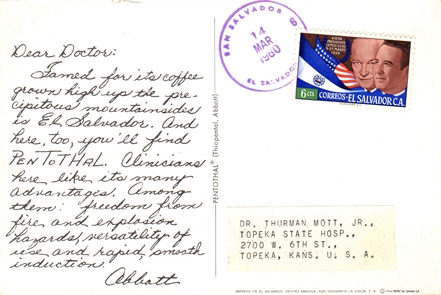 Dear Doctor:
Famed for its coffee
grown high up the pre-
cipitous mountainsides
is El Salvador. And
here, too, you'll find
PENTOTHAL. Clinicians
here like its many
advantages. Among
them: freedom from
fire and explosion
hazards, versatility of
use and rapid, smooth
induction.
Abbott
PENTOTHAL® (Thiopental, Abbott)
SAN SALVADOR
14
MAR
1960
EL SALVADOR
VISITA
PRESIDENTE
6 cts
CORREOS-EL SALVADOR C.A.
DR. THURMAN MOTT, JR.,
TOPEKA STATE HOSP.,
2700 W. 6TH ST.,
TOPEKA, KANS, U. S. A.
IMPRESO EN EL SALVADOR, CENTRO AMERICA, POR